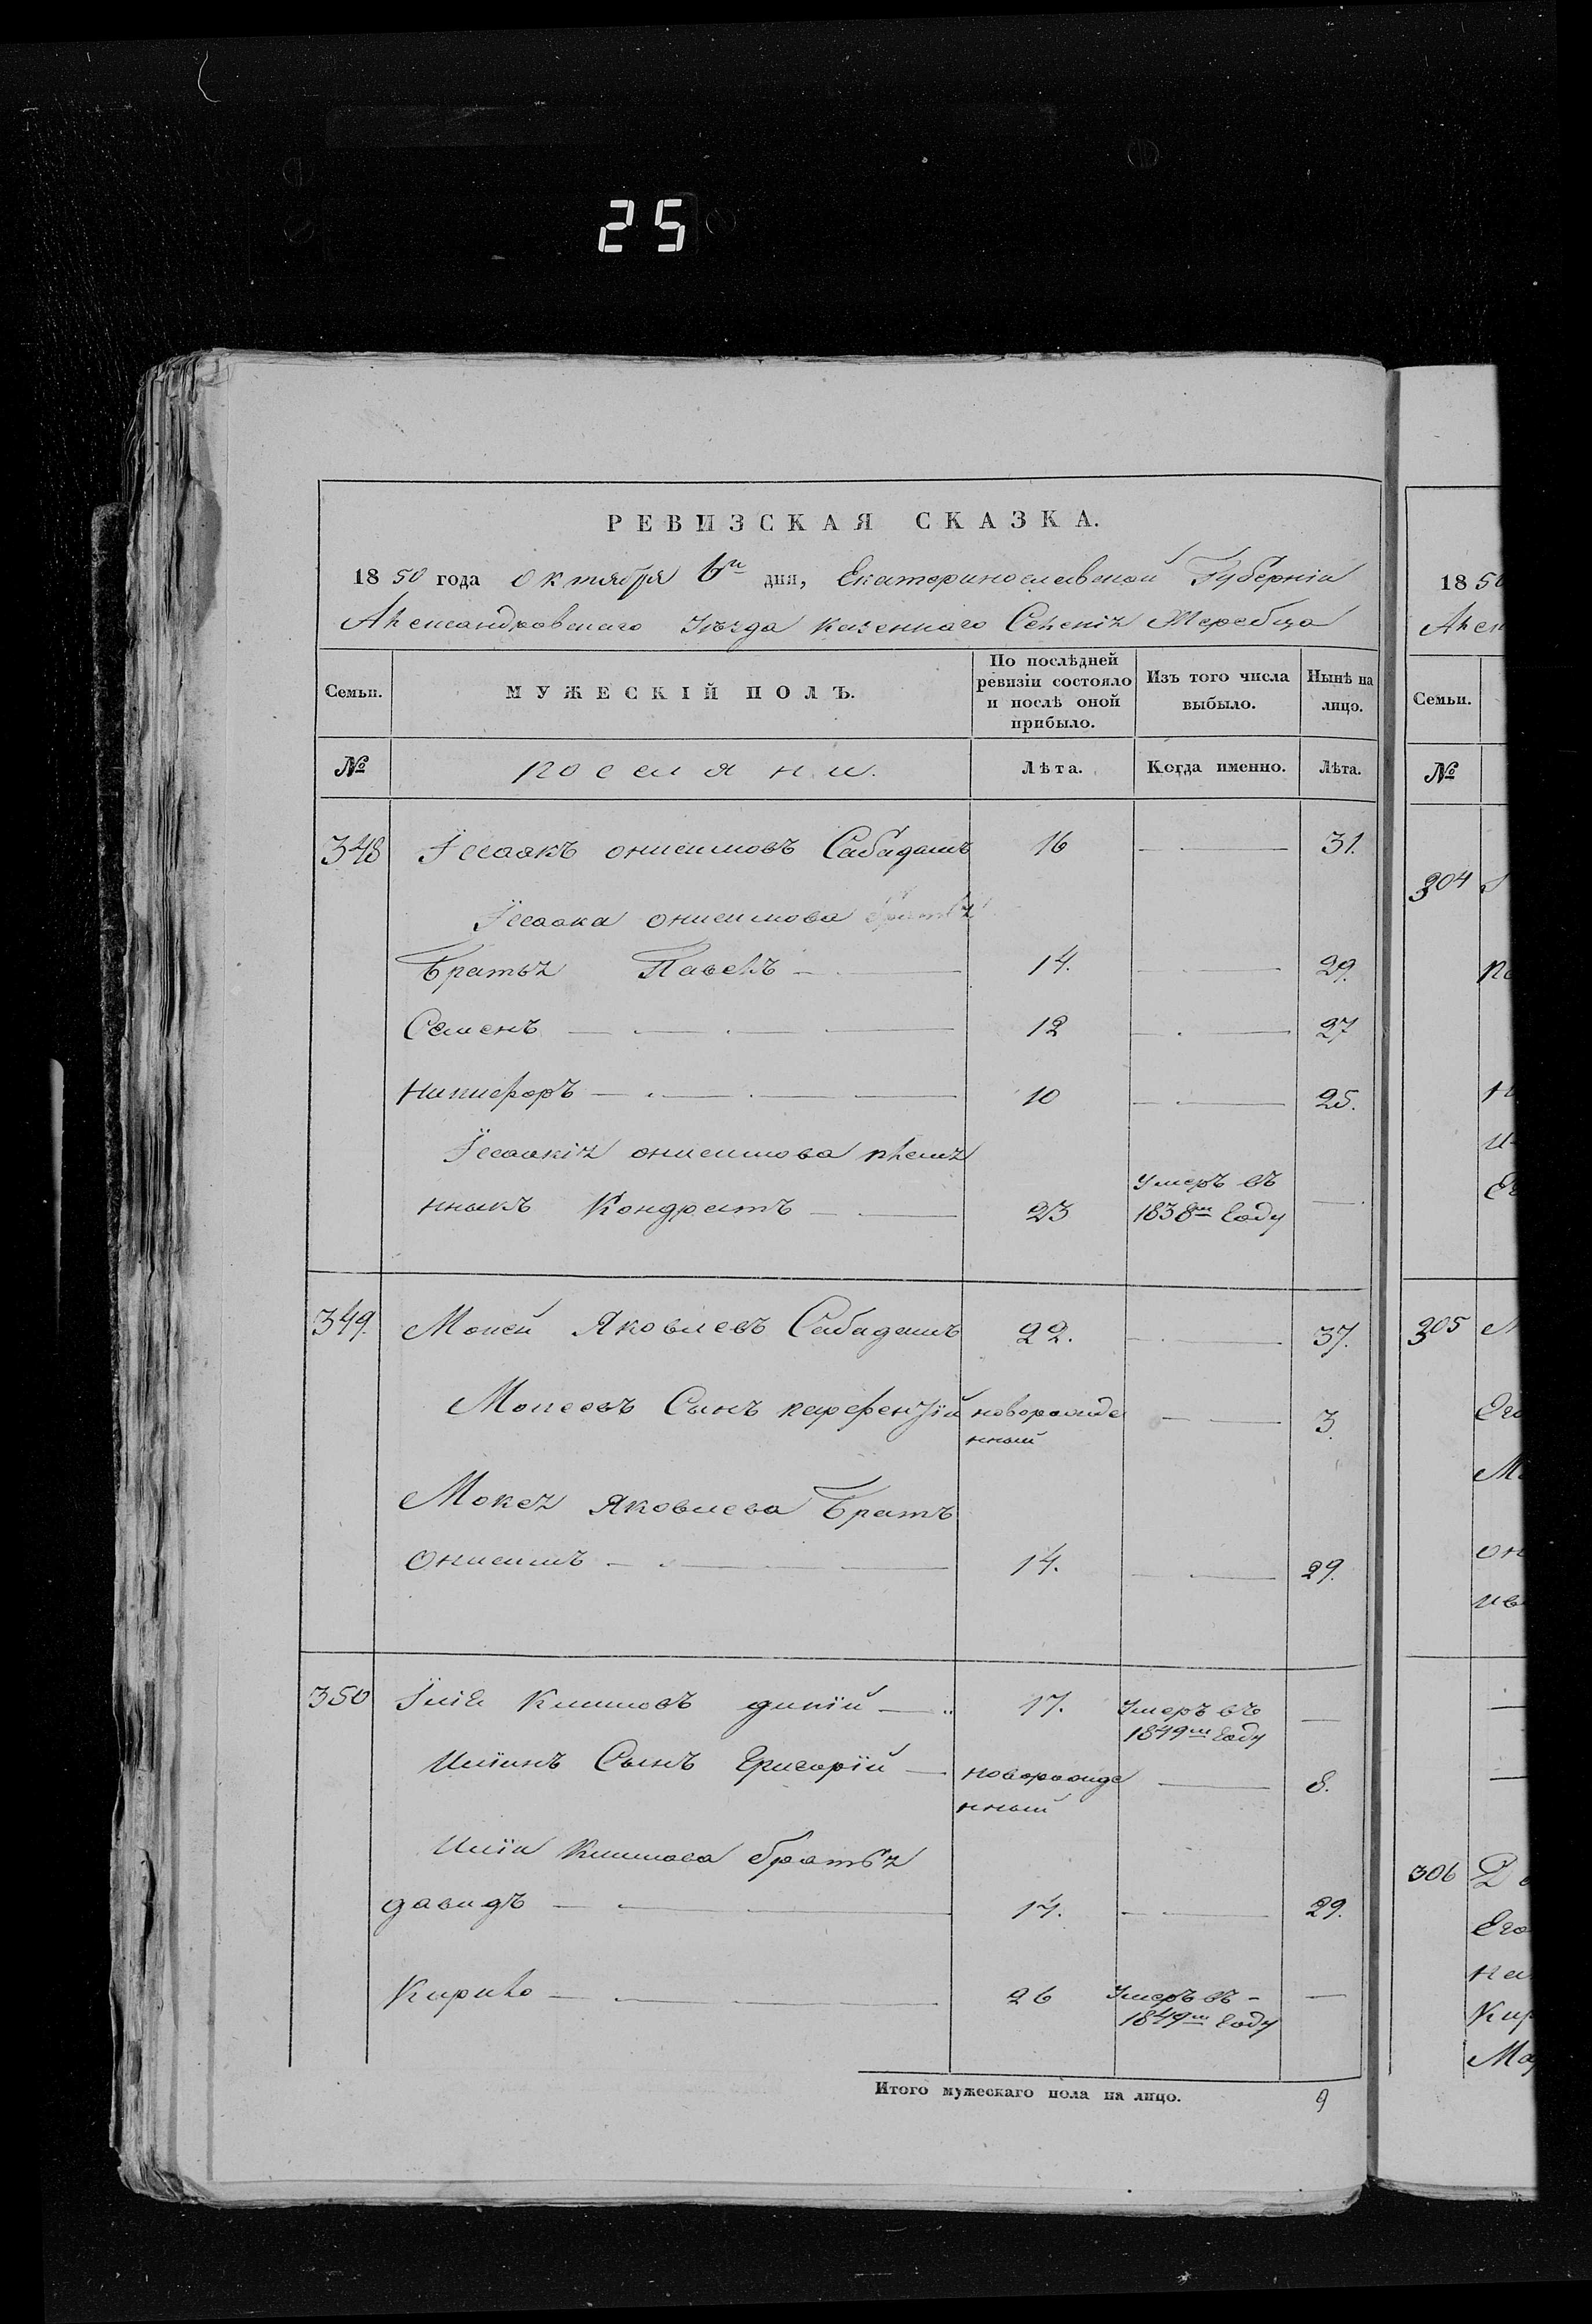 25
РЕВИЗСКАЯ СКАЗКА.
1850 года октября 6го дня, Екатеринославской Губернiи
Александровскаго Уѣзда казеннаго Селенiя Жеребца
Семьи.
МУЖЕСКIЙ ПОЛЪ.
По послѣдней ревизiи состояло и послѣ оной прибыло.
Изъ того числа выбыло.
Нынѣ на лицо.
№
поселяни.
Лѣта.
Когда именно.
Лѣта.
348 Iсаакъ онисимовъ Сабадашъ 16 — 31.
Iсаака онисимова братья
Братья Павелъ — 14. — 29.
Семенъ — 12 — 27
Никифоръ — 10 — 25.
Iсаакiя онисимова племя
нникъ Кондратъ — 23 умеръ въ 1838м году —
349. Мокей Яковлевъ Сабадашъ 22. — 37.
Мокеевъ Сынъ парфентiй новорожде
нный — 3.
Мокея Яковлева Братъ
Онисимъ — 14. — 29.
350 Iлiя Климовъ дикiй — 17. Умеръ въ 1849м году —
Илiинъ Сынъ Григорiй — новорожде
нный — 8.
Илiи Климова братья
давидъ — 14. — 29.
Кирило — 26 Умеръ въ 1849м году —
Итого мужескаго пола на лицо. 9
1850
Семьи.
№
304
305
306